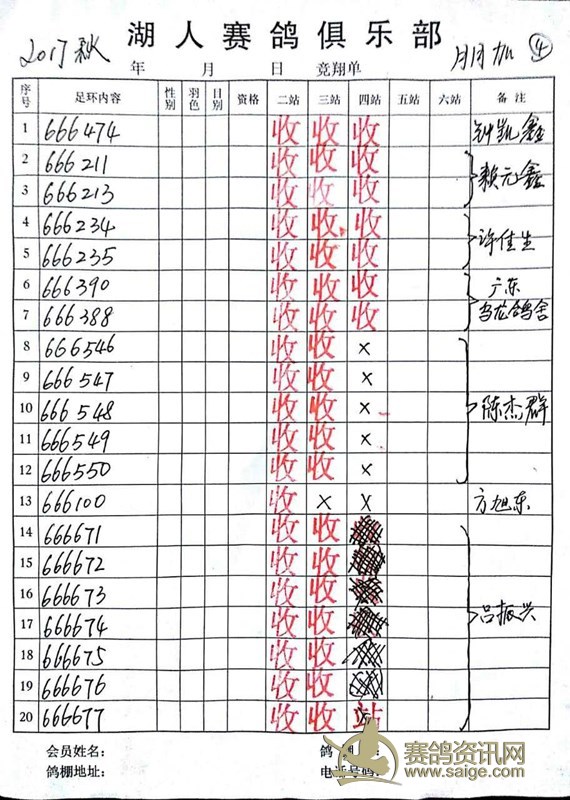 湖人赛鸽俱乐部
2017秋 年 月 日 竞翔单 ④
序号 足环内容 性别 羽色 日别 资格 二站 三站 四站 五站 六站 备注
1 666474 收 收 收 钟凯鑫
2 666211 收 收 收
3 666213 收 收 收 赖元鑫
4 666234 收 收 收
5 666235 收 收 收 许佳生
6 666390 收 收 收 广东
7 666388 收 收 收 乌龙鸽舍
8 666546 收 收 ×
9 666547 收 收 ×
10 666548 收 收 × 陈杰群
11 666549 收 收 ×
12 666550 收 收 ×
13 666100 收 × × 方旭东
14 666671 收 收
15 666672 收 收
16 666673 收 收
17 666674 收 收 吕振兴
18 666675 收 收
19 666676 收 收
20 666677 收 收
会员姓名: 鸽
鸽棚地址: 电话号码:
赛鸽资讯网
www.saige.com